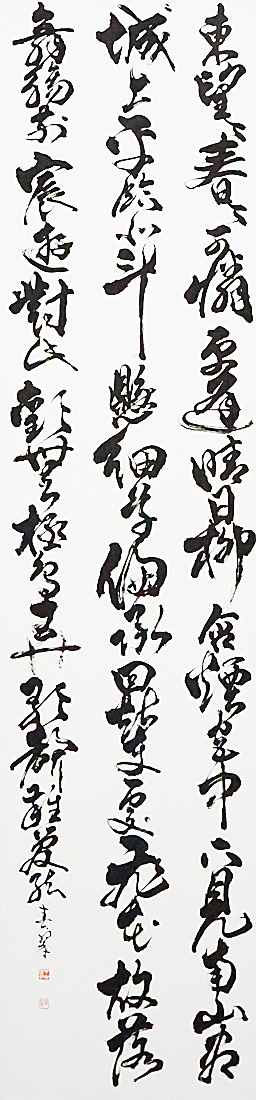 東望〻春〻可憐更逢晴日柳含煙宮中下見南山盡
城上平臨北斗懸細草偏承回輦處飛花故落
舞觴前宸遊對此歡無極鳥弄歌聲雜管絃